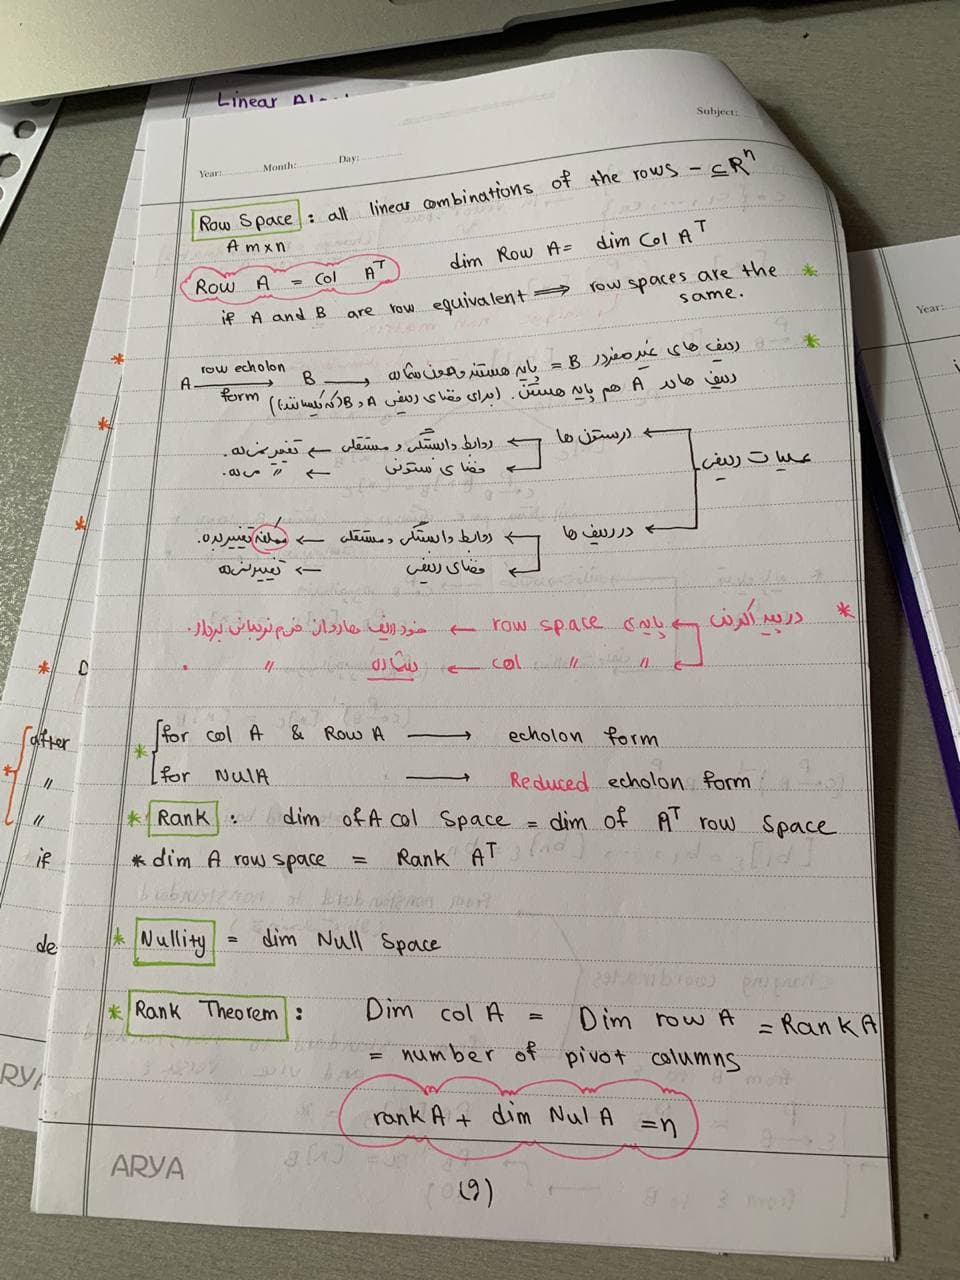 Linear Al
Subject:
Year: Month: Day:
Row Space : all linear combinations of the rows - ⊆ Rⁿ
A m×n
Row A = Col Aᵀ dim Row A = dim Col Aᵀ
if A and B are row equivalent ⟹ row spaces are the *
same.
A row echolon form → B → ردیف های غیر صفر در B = پایه هستند و چون *
ردیف های A هم پایه هستن. (برای فضای ردیفی A و B)
عملیات ردیفی
در ستون ها ← روابط وابستگی و مستقلی ← تغییر نمی ده.
فضای ستونی ← // می ده.
در ردیف ها ← روابط وابستگی و مستقلی ← ممکنه تغییر بده.
فضای ردیفی ← تغییر نمی ده
* در پیدا کردن ← پایه ی row space ← خود ردیف ها رو از فرم بردار.
// // col ← ستون //
* for col A & Row A → echolon form
for Nul A → Reduced echolon form
* Rank : dim of A col Space = dim of Aᵀ row Space
* dim A row space = Rank Aᵀ
* Nullity = dim Null Space
* Rank Theorem : Dim col A = Dim row A = Rank A
= number of pivot columns
rank A + dim Nul A = n
ARYA
(9)
after
//
//
if
de
Year: